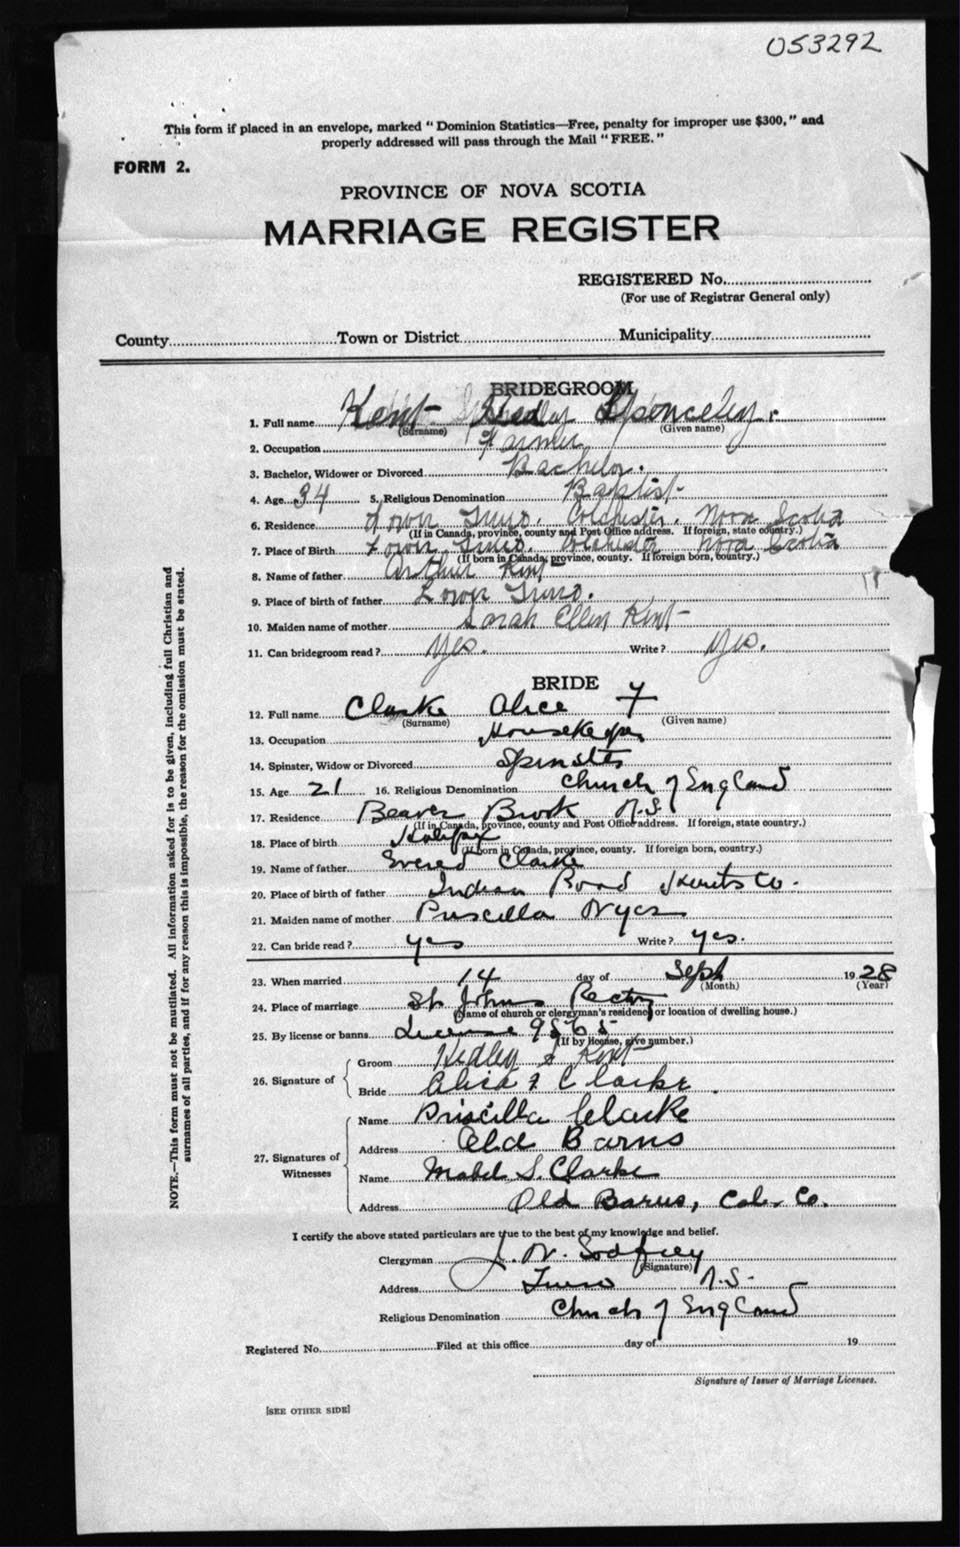 053292
This form if placed in an envelope, marked "Dominion Statistics—Free, penalty for improper use $300," and
properly addressed will pass through the Mail "FREE."
FORM 2.
PROVINCE OF NOVA SCOTIA
MARRIAGE REGISTER
REGISTERED No.
(For use of Registrar General only)
County Town or District Municipality
BRIDEGROOM
1. Full name Kent Hedley
(Surname) (Given name)
2. Occupation Farmer
3. Bachelor, Widower or Divorced Bachelor.
4. Age 34 5. Religious Denomination Baptist
6. Residence Lower Truro. Colchester. Nova Scotia
(If in Canada, province, county and Post Office address. If foreign, state country.)
7. Place of Birth Lower Truro. Colchester Nova Scotia
(If born in Canada, province, county. If foreign born, country.)
8. Name of father Arthur Kent
9. Place of birth of father Lower Truro.
10. Maiden name of mother Sarah Ellen Kent
11. Can bridegroom read? Yes. Write? Yes.
BRIDE
12. Full name Clarke Alice F
(Surname) (Given name)
13. Occupation Housekeeper
14. Spinster, Widow or Divorced Spinster
15. Age 21 16. Religious Denomination Church of England
17. Residence Beaver Brook N.S.
(If in Canada, province, county and Post Office address. If foreign, state country.)
18. Place of birth Halifax
(If born in Canada, province, county. If foreign born, country.)
19. Name of father Evered Clarke
20. Place of birth of father Indian Road Hants Co.
21. Maiden name of mother Priscilla
22. Can bride read? yes Write? yes.
23. When married 14 day of Sept 1928
(Month) (Year)
24. Place of marriage St Johns Rectory
(Name of church or clergyman's residence or location of dwelling house.)
25. By license or banns License 9565
(If by license, give number.)
26. Signature of
Groom Hedley S Kent
Bride Alice F Clarke
27. Signatures of Witnesses
Name Priscilla Clarke
Address Old Barns
Name Mabel S. Clarke
Address Old Barns, Col. Co.
I certify the above stated particulars are true to the best of my knowledge and belief.
Clergyman J. W. Godfrey
(Signature)
Address Truro N.S.
Religious Denomination Church of England
Registered No. Filed at this office day of 19
Signature of Issuer of Marriage Licenses.
[SEE OTHER SIDE]
NOTE.—This form must not be mutilated. All information asked for is to be given, including full Christian and
surnames of all parties, and if for any reason this is impossible, the reason for the omission must be stated.